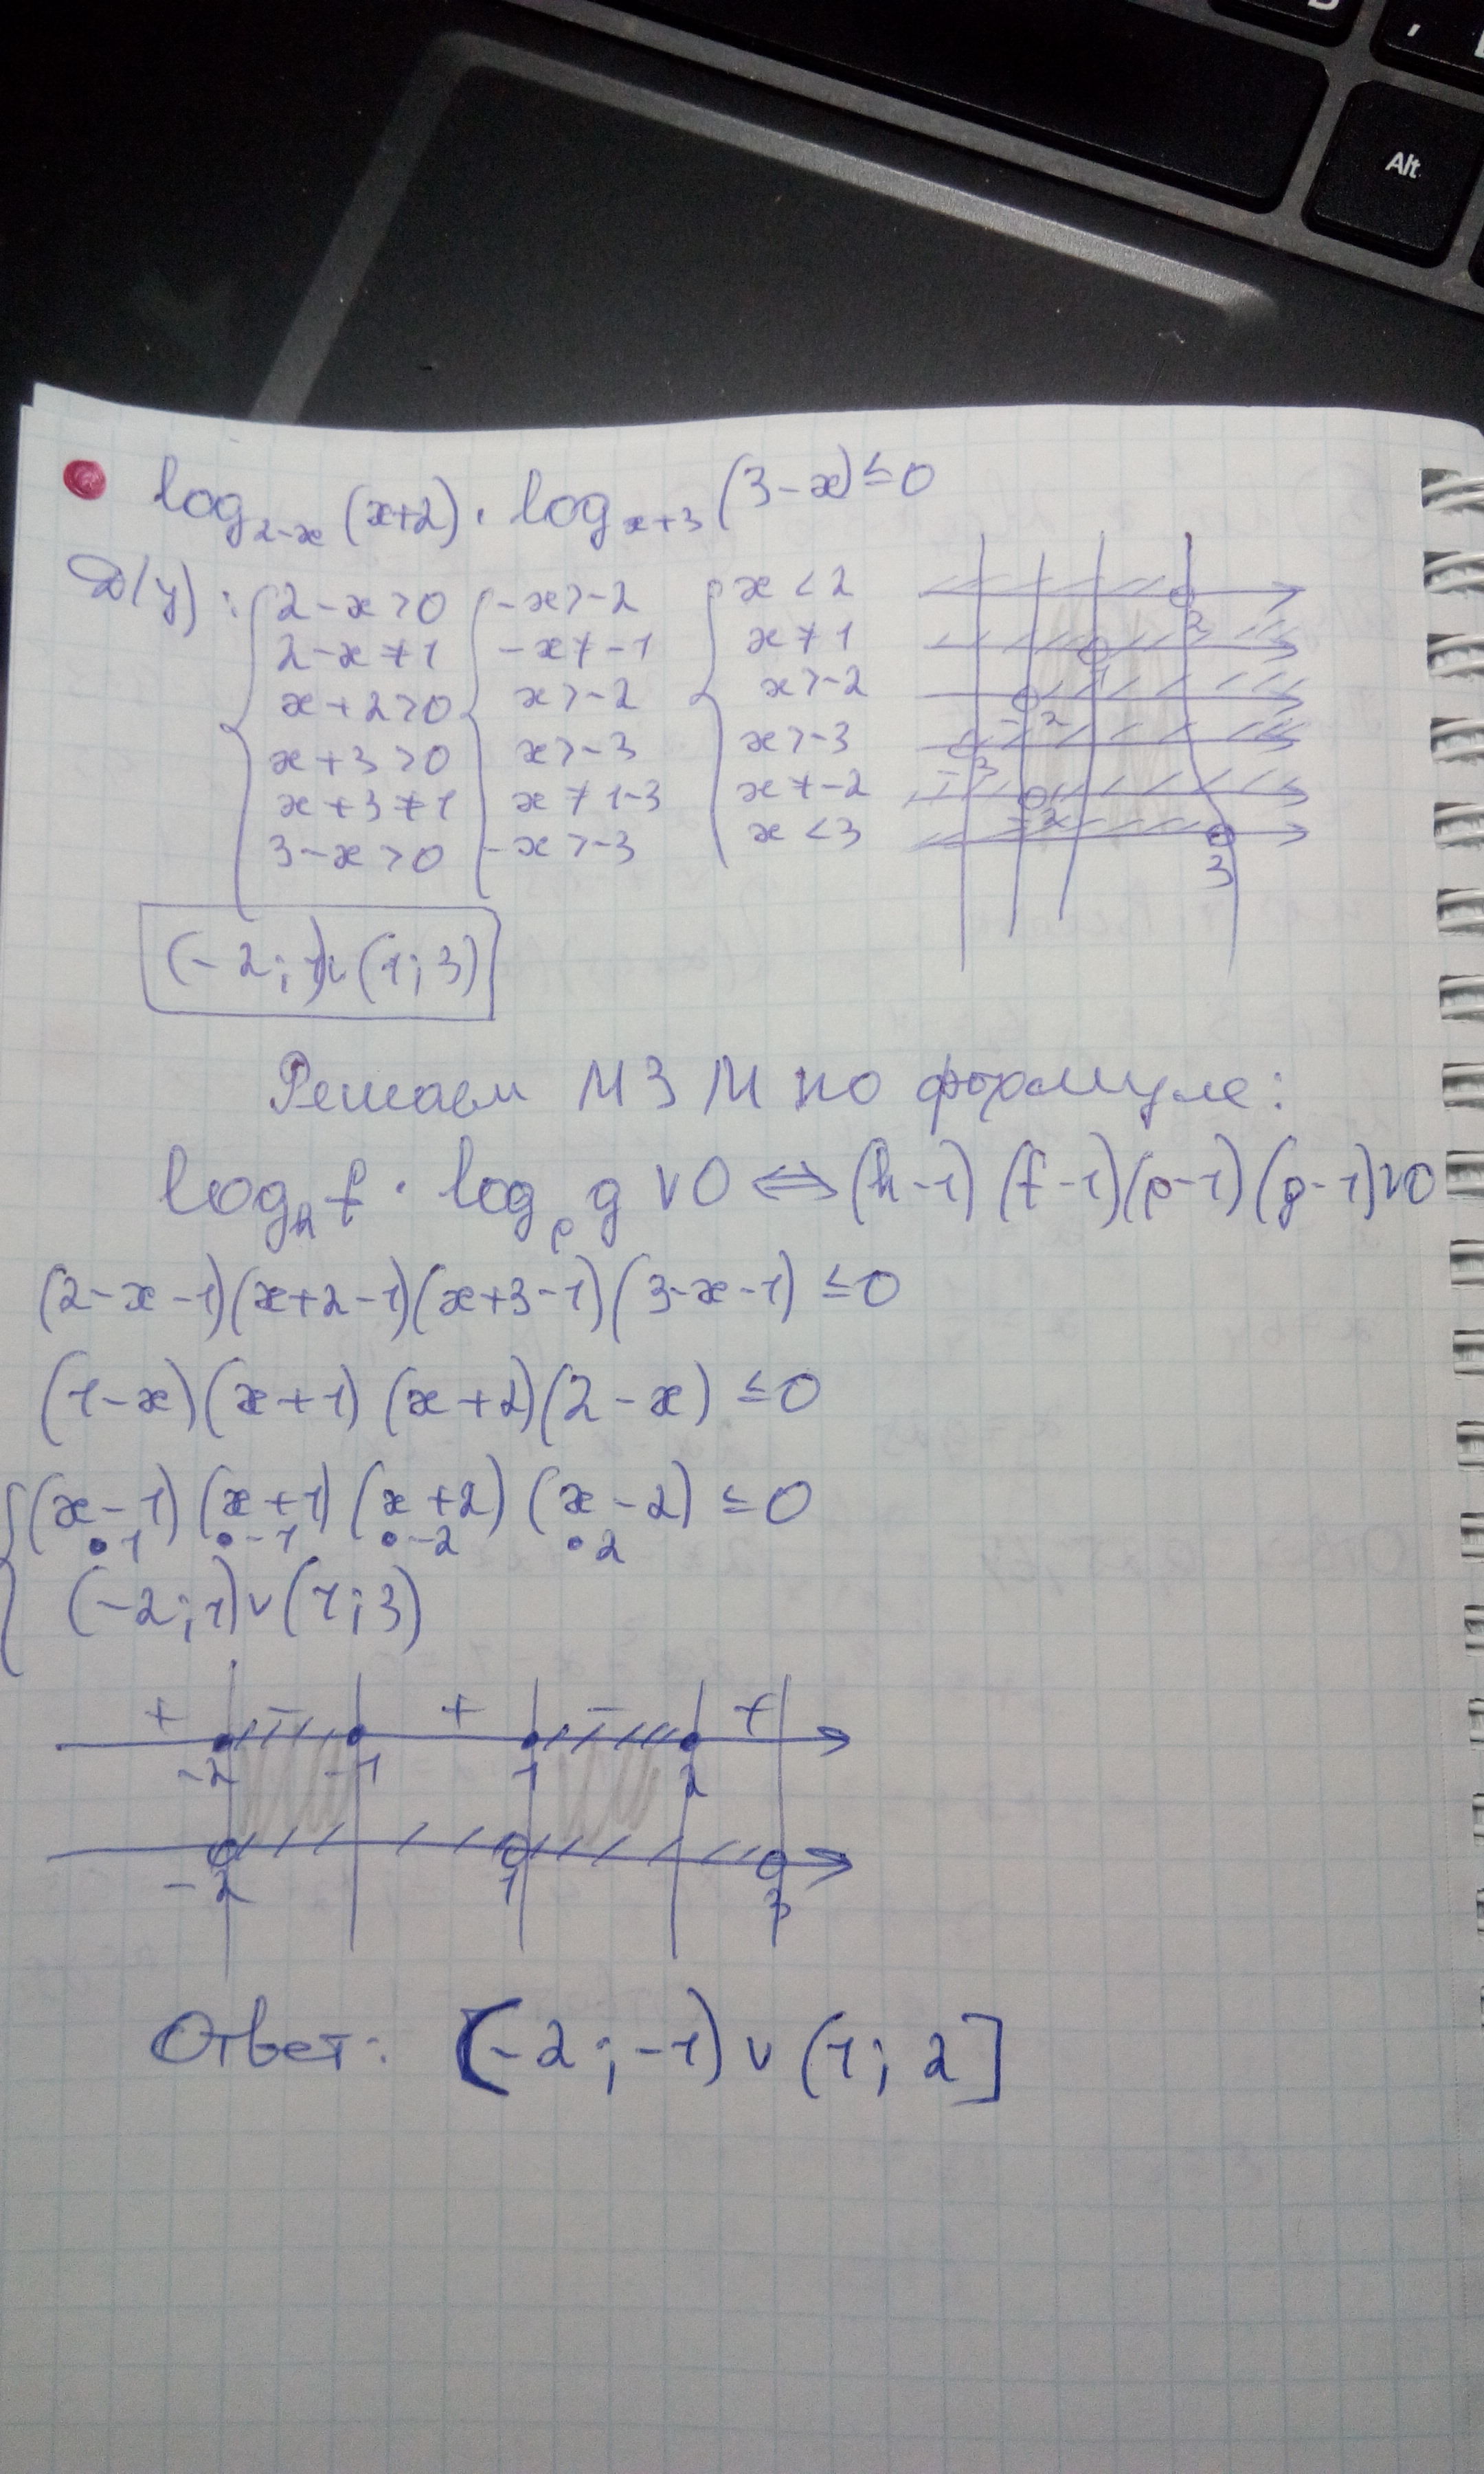 Alt
log₂₋ₓ (x+2) · logₓ₊₃ (3-x) ≤ 0
D(y):
2-x>0 -x>-2 x<2
2-x≠1 -x≠-1 x≠1
x+2>0 x>-2 x>-2
x+3>0 x>-3 x>-3
x+3≠1 x≠1-3 x≠-2
3-x>0 -x>-3 x<3
2
1
-2
-3
-2
3
(-2;1)∪(1;3)
Решаем МЗМ по формуле:
logₕ f · logₚ g ∨ 0 ⇔ (h-1)(f-1)(p-1)(g-1) ∨ 0
(2-x-1)(x+2-1)(x+3-1)(3-x-1) ≤ 0
(1-x)(x+1)(x+2)(2-x) ≤ 0
(x-1)(x+1)(x+2)(x-2) ≤ 0
• 1 • -1 • -2 • 2
(-2;1)∪(1;3)
+ - + - +
-2 -1 1 2
-2 1 3
Ответ: (-2;-1)∪(1;2]